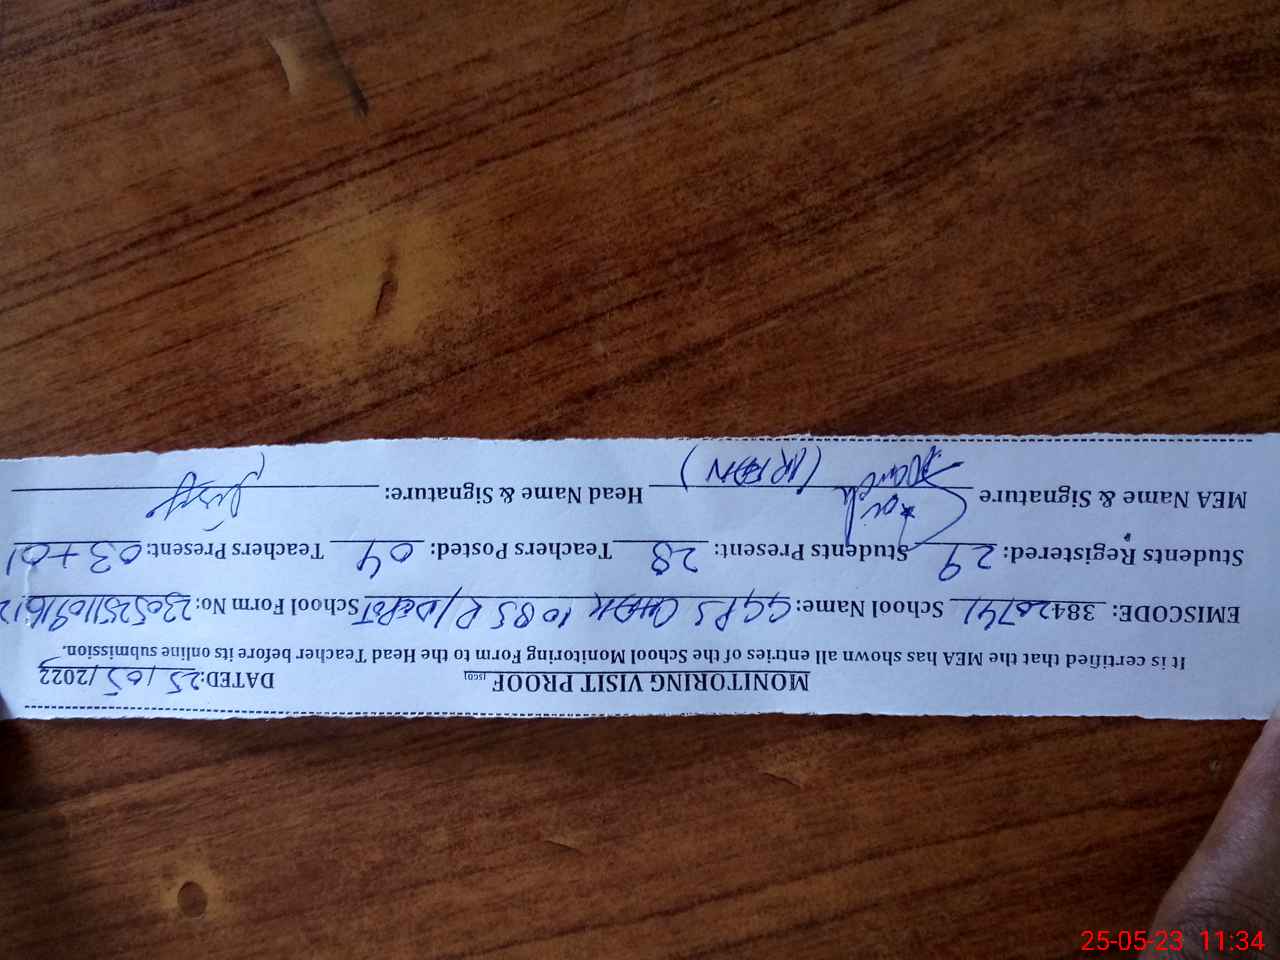 MONITORING VISIT PROOF DATED: 25/05/2023
It is certified that the MEA has shown all entries of the School Monitoring Form to the Head Teacher before its online submission.
EMISCODE: 38420741 School Name: GGPS CHAK 10 8S R/DEPOT School Form No:
Students Registered: 29 Students Present: 28 Teachers Posted: 04 Teachers Present: 03+01
MEA Name & Signature (IRFAN) Head Name & Signature:
25-05-23 11:34